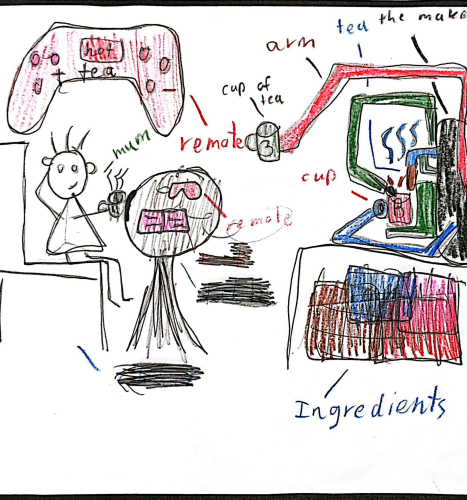 the make
tea
arm
hot
tea
cup of
tea
remote
mum
3
cup
remote
Ingredients